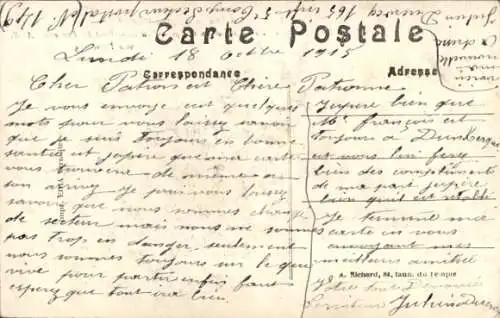 Julien Duracq 165 inft 5e Compie Secteur postal N° 149
Carte Postale
Lundi 18 Octbre 1915
Correspondance
Adresse
Cher Patron et Chère Patronne
Je vous envoye ces quelques
mots pour vous laissez savoir
que je suis toujours en bonne
santée et j'espère que ma carte
vous trouvera de même a
son arrivée Je puis vous laissez
savoir que nous sommes changé
de secteur mais nous ne sommes
pas trop en danger seulement
nous sommes toujours sur le qui
vive pour partir enfin faut
esperez que tout ira bien.
J'espère bien que
Mr François est
toujours à Dunkerque
et vous lui ferez
bien des compliments
de ma part j'espère
bien qu'il est
Je termine ma
carte en vous
envoyant mes
meilleurs amitiés
A. Richard, 84, faub. du Temple
Votre tout Dévoué
Serviteur Julien